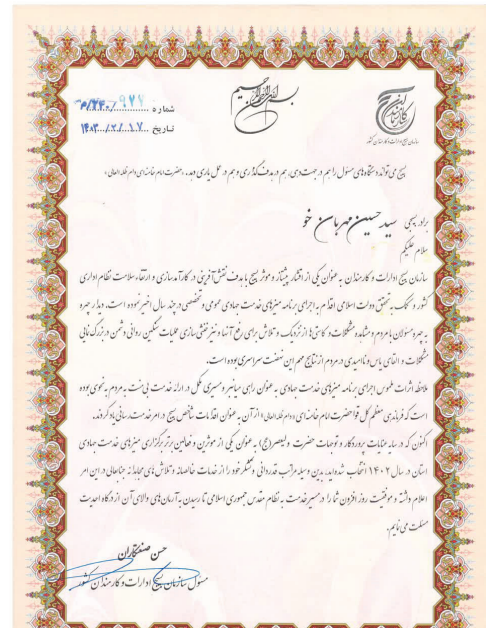 بسم الله الرحمن الرحیم
شماره ۹۲۷/۲۴۰/م
تاریخ ۱۴۰۳/۲/۱۷
سازمان بسیج ادارات و کارمندان کشور
بسیج می‌تواند دستگاه‌های مسئول را هم در جهت‌دهی، هم در هدف‌گذاری و هم در عمل یاری دهد. «حضرت امام خامنه‌ای دام ظله العالی»
برادر بسیجی سید حسین مهربان خو
سلام علیکم
سازمان بسیج ادارات و کارمندان به عنوان یکی از اقشار پیشتاز و موثر بسیج با هدف نقش‌آفرینی در کارآمدسازی و ارتقاء سلامت نظام اداری
کشور و کمک به تحقق دولت اسلامی اقدام به اجرای برنامه میزهای خدمت جهادی عمومی و تخصصی در چند سال اخیر نموده است. دیدار چهره
به چهره مسئولان با مردم و مشاهده مشکلات و کاستی‌ها از نزدیک و تلاش برای رفع آنها و نیز خنثی‌سازی عملیات سنگین روانی دشمن در بزرگ‌نمایی
مشکلات و القای یاس و ناامیدی در مردم از نتایج مهم این نهضت سراسری بوده است.
ملاحظه اثرات ملموس اجرای برنامه میزهای خدمت جهادی به عنوان راهی میانبر و مسیری مکمل در ارائه خدمت بی‌منت به مردم به نحوی بوده
است که فرماندهی معظم کل قوا حضرت امام خامنه‌ای (دام ظله العالی) از آن به عنوان اقدامات شاخص بسیج در امر خدمت‌رسانی یاد کردند.
اکنون که در سایه عنایات پروردگار و توجهات حضرت ولیعصر (عج) به عنوان یکی از موثرین و فعالین برتر برگزاری میزهای خدمت جهادی
استان در سال ۱۴۰۲ انتخاب شده‌اید، بدین وسیله مراتب قدردانی و تشکر خود را از خدمات خالصانه و تلاش‌های مجدانه جنابعالی در این امر
اعلام داشته و موفقیت روز افزون شما را در مسیر خدمت به نظام مقدس جمهوری اسلامی تا رسیدن به آرمان‌های والای آن از درگاه احدیت
مسئلت می‌نمایم.
حسن صنعتکاران
مسئول سازمان بسیج ادارات و کارمندان کشور